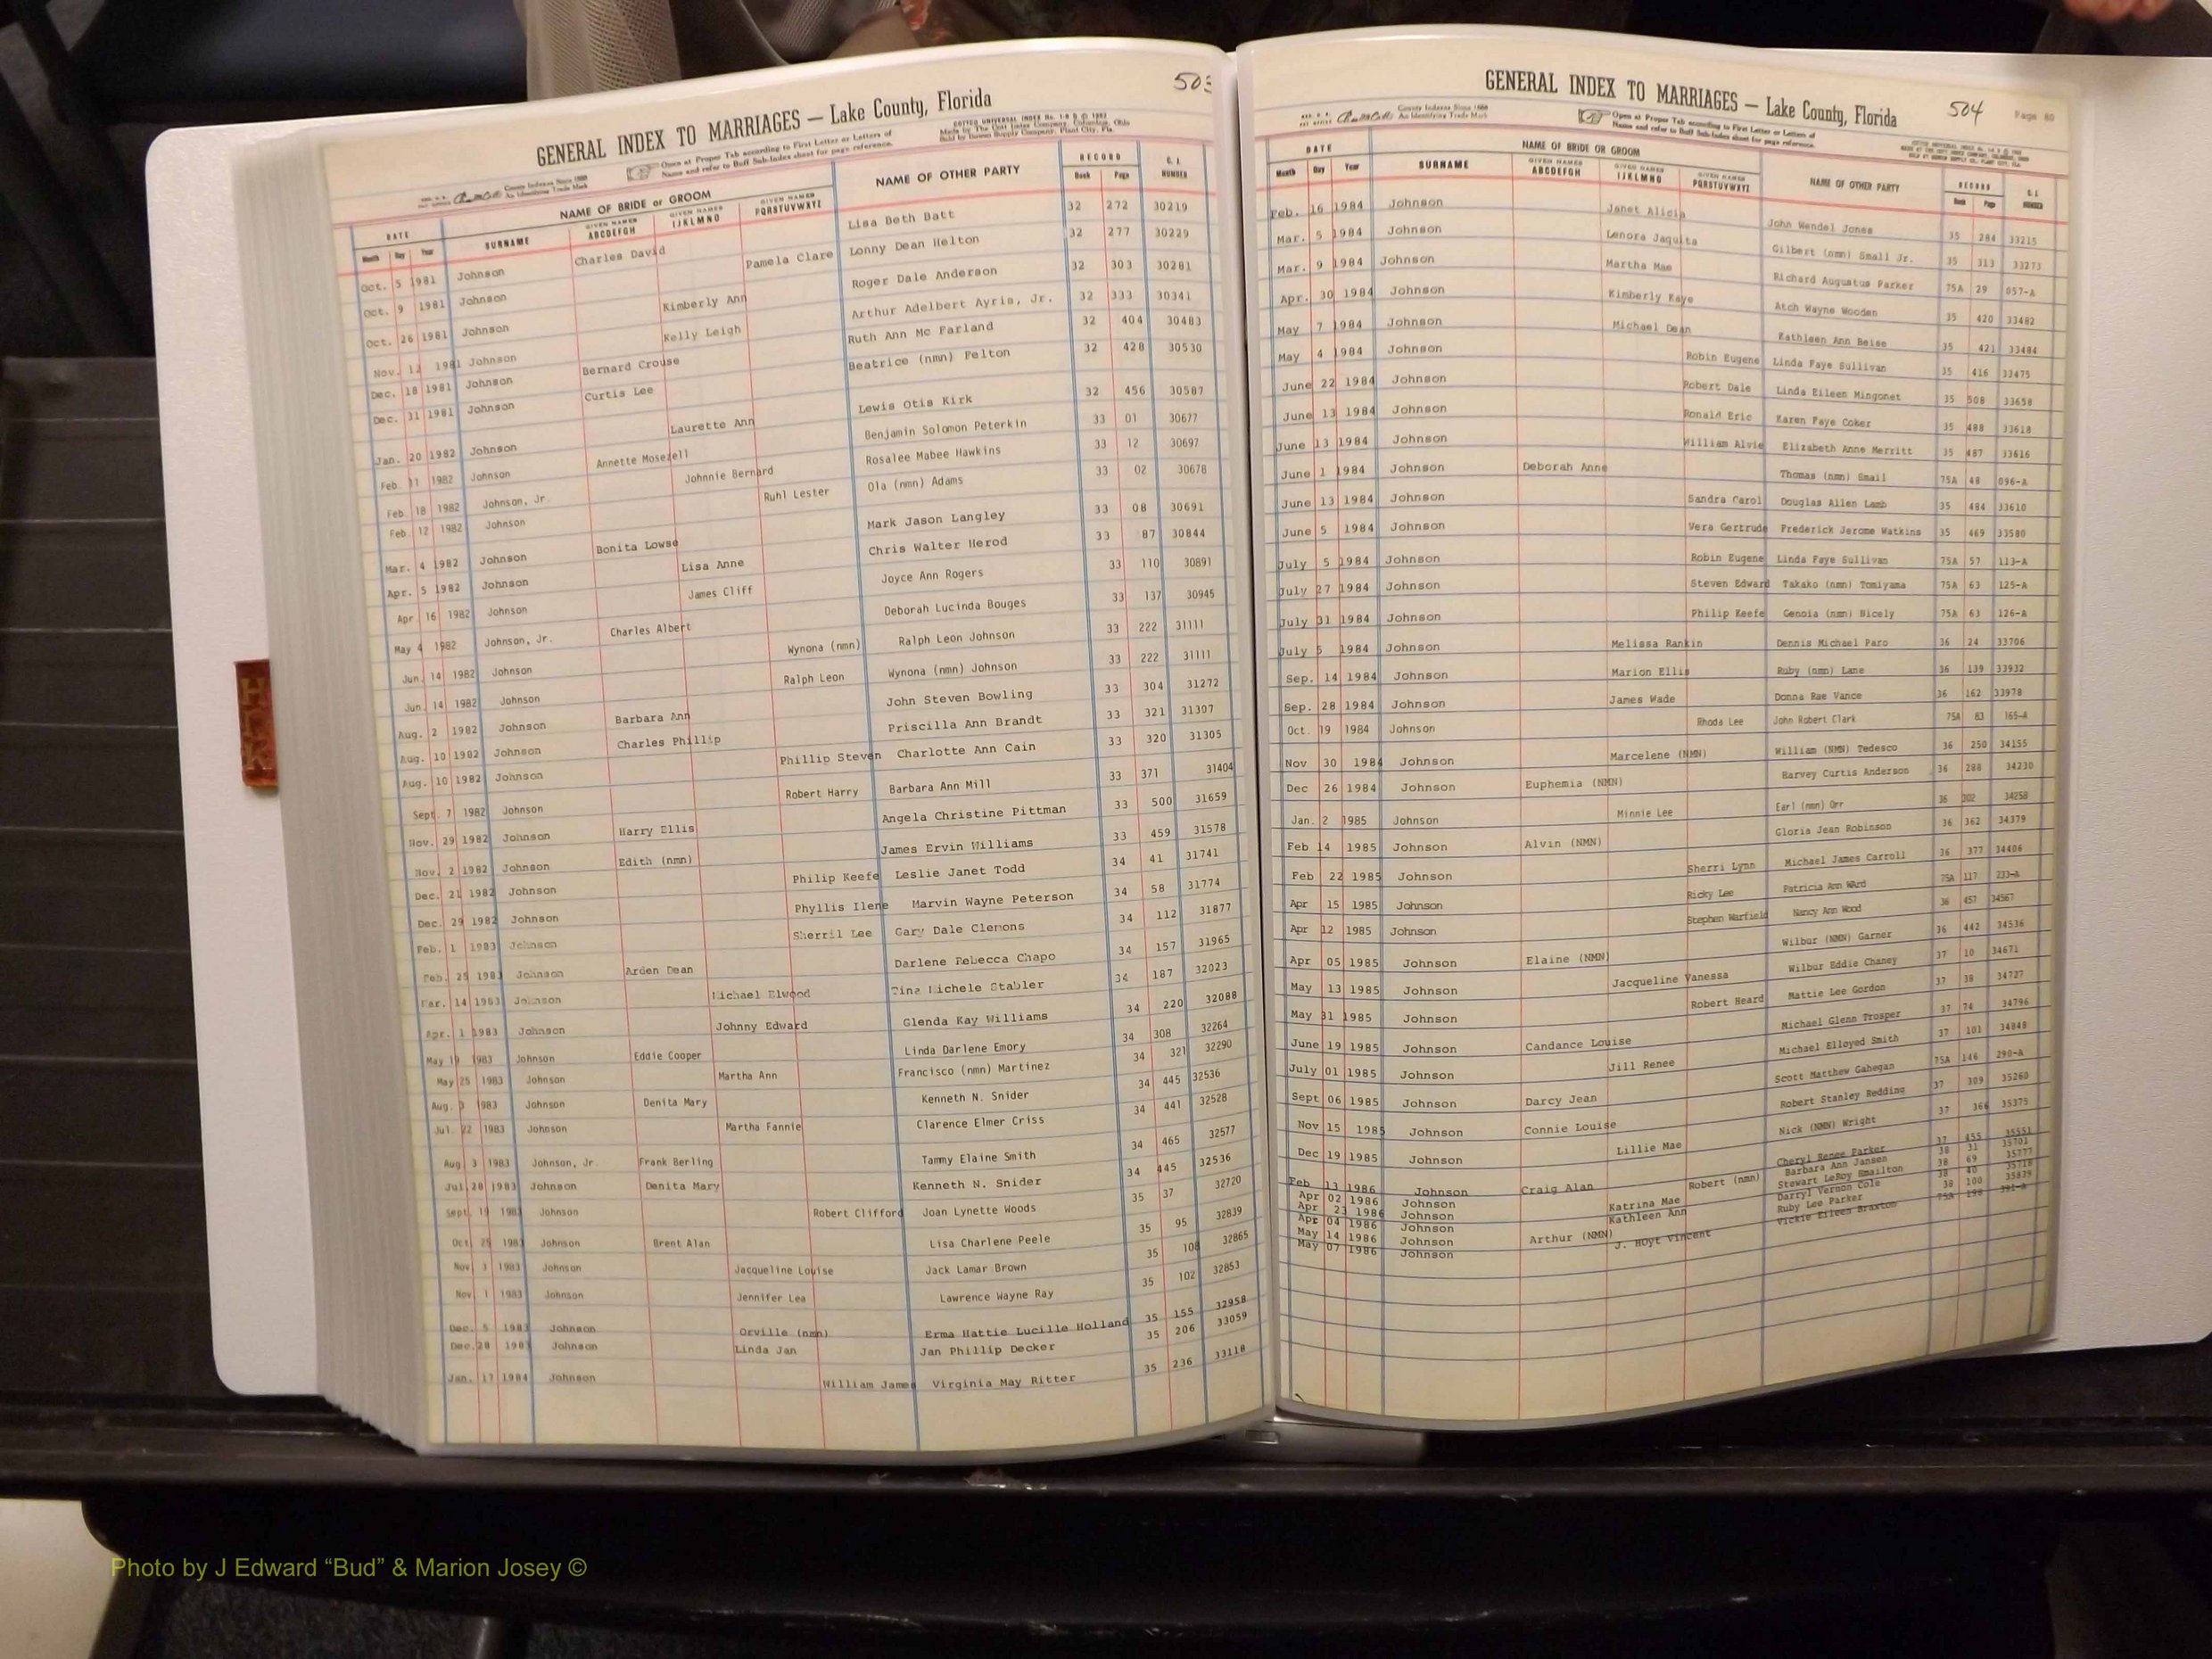 503
GENERAL INDEX TO MARRIAGES — Lake County, Florida
Open at Proper Tab according to First Letter or Letters of
Name and refer to Buff Sub-Index sheet for page reference.
County Indexes Since 1888
An Identifying Trade Mark
DATE NAME OF BRIDE or GROOM NAME OF OTHER PARTY RECORD
Month Day Year SURNAME GIVEN NAMES ABCDEFGH GIVEN NAMES IJKLMNO GIVEN NAMES PQRSTUVWXYZ Book Page NUMBER
Oct. 5 1981 Johnson Charles David Lisa Beth Batt 32 272 30219
Oct. 9 1981 Johnson Pamela Clare Lonny Dean Helton 32 277 30229
Oct. 26 1981 Johnson Kimberly Ann Roger Dale Anderson 32 303 30281
Nov. 12 1981 Johnson Kelly Leigh Arthur Adelbert Ayris, Jr. 32 333 30341
Dec. 18 1981 Johnson Bernard Crouse Ruth Ann Mc Farland 32 404 30483
Dec. 31 1981 Johnson Curtis Lee Beatrice (nmn) Felton 32 428 30530
Jan. 20 1982 Johnson Laurette Ann Lewis Otis Kirk 32 456 30587
Feb. 11 1982 Johnson Annette Mosezell Benjamin Solomon Peterkin 33 01 30677
Feb. 18 1982 Johnson, Jr. Johnnie Bernard Rosalee Mabee Hawkins 33 12 30697
Feb. 12 1982 Johnson Ruhl Lester Ola (nmn) Adams 33 02 30678
Mar. 4 1982 Johnson Bonita Lowse Mark Jason Langley 33 08 30691
Apr. 5 1982 Johnson Lisa Anne Chris Walter Herod 33 87 30844
Apr. 16 1982 Johnson James Cliff Joyce Ann Rogers 33 110 30891
May 4 1982 Johnson, Jr. Charles Albert Deborah Lucinda Bouges 33 137 30945
Jun. 14 1982 Johnson Wynona (nmn) Ralph Leon Johnson 33 222 31111
Jun. 14 1982 Johnson Ralph Leon Wynona (nmn) Johnson 33 222 31111
Aug. 2 1982 Johnson Barbara Ann John Steven Bowling 33 304 31272
Aug. 10 1982 Johnson Charles Phillip Priscilla Ann Brandt 33 321 31307
Aug. 10 1982 Johnson Phillip Steven Charlotte Ann Cain 33 320 31305
Sept. 7 1982 Johnson Robert Harry Barbara Ann Mill 33 371 31404
Nov. 29 1982 Johnson Harry Ellis Angela Christine Pittman 33 500 31659
Nov. 2 1982 Johnson Edith (nmn) James Ervin Williams 33 459 31578
Dec. 21 1982 Johnson Philip Keefe Leslie Janet Todd 34 41 31741
Dec. 29 1982 Johnson Phyllis Ilene Marvin Wayne Peterson 34 58 31774
Feb. 1 1983 Johnson Sherril Lee Gary Dale Clemons 34 112 31877
Feb. 25 1983 Johnson Arden Dean Darlene Rebecca Chapo 34 157 31965
Mar. 14 1983 Johnson Michael Elwood Tina Michele Stabler 34 187 32023
Apr. 1 1983 Johnson Johnny Edward Glenda Kay Williams 34 220 32088
May 19 1983 Johnson Eddie Cooper Linda Darlene Emory 34 308 32264
May 25 1983 Johnson Martha Ann Francisco (nmn) Martinez 34 321 32290
Aug. 3 1983 Johnson Denita Mary Kenneth N. Snider 34 445 32536
Jul. 22 1983 Johnson Martha Fannie Clarence Elmer Criss 34 441 32528
Aug. 3 1983 Johnson, Jr. Frank Berling Tammy Elaine Smith 34 465 32577
Jul. 28 1983 Johnson Denita Mary Kenneth N. Snider 34 445 32536
Sept. 19 1983 Johnson Robert Clifford Joan Lynette Woods 35 37 32720
Oct. 25 1983 Johnson Brent Alan Lisa Charlene Peele 35 95 32839
Nov. 3 1983 Johnson Jacqueline Louise Jack Lamar Brown 35 108 32865
Nov. 1 1983 Johnson Jennifer Lea Lawrence Wayne Ray 35 102 32853
Dec. 5 1983 Johnson Orville (nmn) Erma Hattie Lucille Holland 35 155 32958
Dec. 28 1983 Johnson Linda Jan Jan Phillip Decker 35 206 33059
Jan. 17 1984 Johnson William James Virginia May Ritter 35 236 33118
GENERAL INDEX TO MARRIAGES — Lake County, Florida 504 Page 80
County Indexes Since 1888
An Identifying Trade Mark
Open at Proper Tab according to First Letter or Letters of
Name and refer to Buff Sub-Index sheet for page reference.
DATE NAME OF BRIDE OR GROOM NAME OF OTHER PARTY RECORD
Month Day Year SURNAME GIVEN NAMES ABCDEFGH GIVEN NAMES IJKLMNO GIVEN NAMES PQRSTUVWXYZ Book Page NUMBER
Feb. 16 1984 Johnson Janet Alicia John Wendel Jones 35 284 33215
Mar. 5 1984 Johnson Lenora Jaquita Gilbert (nmn) Small Jr. 35 313 33273
Mar. 9 1984 Johnson Martha Mae Richard Augustus Parker 75A 29 057-A
Apr. 30 1984 Johnson Kimberly Kaye Atch Wayne Wooden 35 420 33482
May 7 1984 Johnson Michael Dean Kathleen Ann Beise 35 421 33484
May 4 1984 Johnson Robin Eugene Linda Faye Sullivan 35 416 33475
June 22 1984 Johnson Robert Dale Linda Eileen Mingonet 35 508 33658
June 13 1984 Johnson Ronald Eric Karen Faye Coker 35 488 33618
June 13 1984 Johnson William Alvie Elizabeth Anne Merritt 35 487 33616
June 1 1984 Johnson Deborah Anne Thomas (nmn) Smail 75A 48 096-A
June 13 1984 Johnson Sandra Carol Douglas Allen Lamb 35 484 33610
June 5 1984 Johnson Vera Gertrude Frederick Jerome Watkins 35 469 33580
July 5 1984 Johnson Robin Eugene Linda Faye Sullivan 75A 57 113-A
July 27 1984 Johnson Steven Edward Takako (nmn) Tomiyama 75A 63 125-A
July 31 1984 Johnson Philip Keefe Genoia (nmn) Nicely 75A 63 126-A
July 5 1984 Johnson Melissa Rankin Dennis Michael Paro 36 24 33706
Sep. 14 1984 Johnson Marion Ellis Ruby (nmn) Lane 36 139 33932
Sep. 28 1984 Johnson James Wade Donna Rae Vance 36 162 33978
Oct. 19 1984 Johnson Rhoda Lee John Robert Clark 75A 83 165-A
Nov 30 1984 Johnson Marcelene (NMN) William (NMN) Tedesco 36 250 34155
Dec 26 1984 Johnson Euphemia (NMN) Harvey Curtis Anderson 36 288 34230
Jan. 2 1985 Johnson Minnie Lee Earl (nmn) Orr 36 302 34258
Feb 14 1985 Johnson Alvin (NMN) Gloria Jean Robinson 36 362 34379
Feb 22 1985 Johnson Sherri Lynn Michael James Carroll 36 377 34406
Apr 15 1985 Johnson Ricky Lee Patricia Ann WArd 75A 117 233-A
Apr 12 1985 Johnson Stephen Warfield Nancy Ann Wood 36 457 34567
Apr 05 1985 Johnson Elaine (NMN) Wilbur (NMN) Garner 36 442 34536
May 13 1985 Johnson Jacqueline Vanessa Wilbur Eddie Chaney 37 10 34671
May 31 1985 Johnson Robert Heard Mattie Lee Gordon 37 38 34727
June 19 1985 Johnson Candance Louise Michael Glenn Trosper 37 74 34796
July 01 1985 Johnson Jill Renee Michael Elloyed Smith 37 101 34848
Sept 06 1985 Johnson Darcy Jean Scott Matthew Gahegan 75A 146 290-A
Nov 15 1985 Johnson Connie Louise Robert Stanley Redding 37 309 35260
Dec 19 1985 Johnson Lillie Mae Nick (NMN) Wright 37 366 35375
Feb 13 1986 Johnson Craig Alan Cheryl Renee Parker 37 455 35551
Apr 02 1986 Johnson Robert (nmn) Barbara Ann Jansen 38 31 35701
Apr 23 1986 Johnson Katrina Mae Stewart LeRoy Hmailton 38 69 35777
Apr 04 1986 Johnson Kathleen Ann Darryl Vernon Cole 38 40
May 14 1986 Johnson Arthur (NMN) Ruby Lee Parker 38 100 35839
May 07 1986 Johnson J. HOyt Vincent Vickie Eileen Braxton 75A
H
I
J
K
Photo by J Edward “Bud” & Marion Josey ©